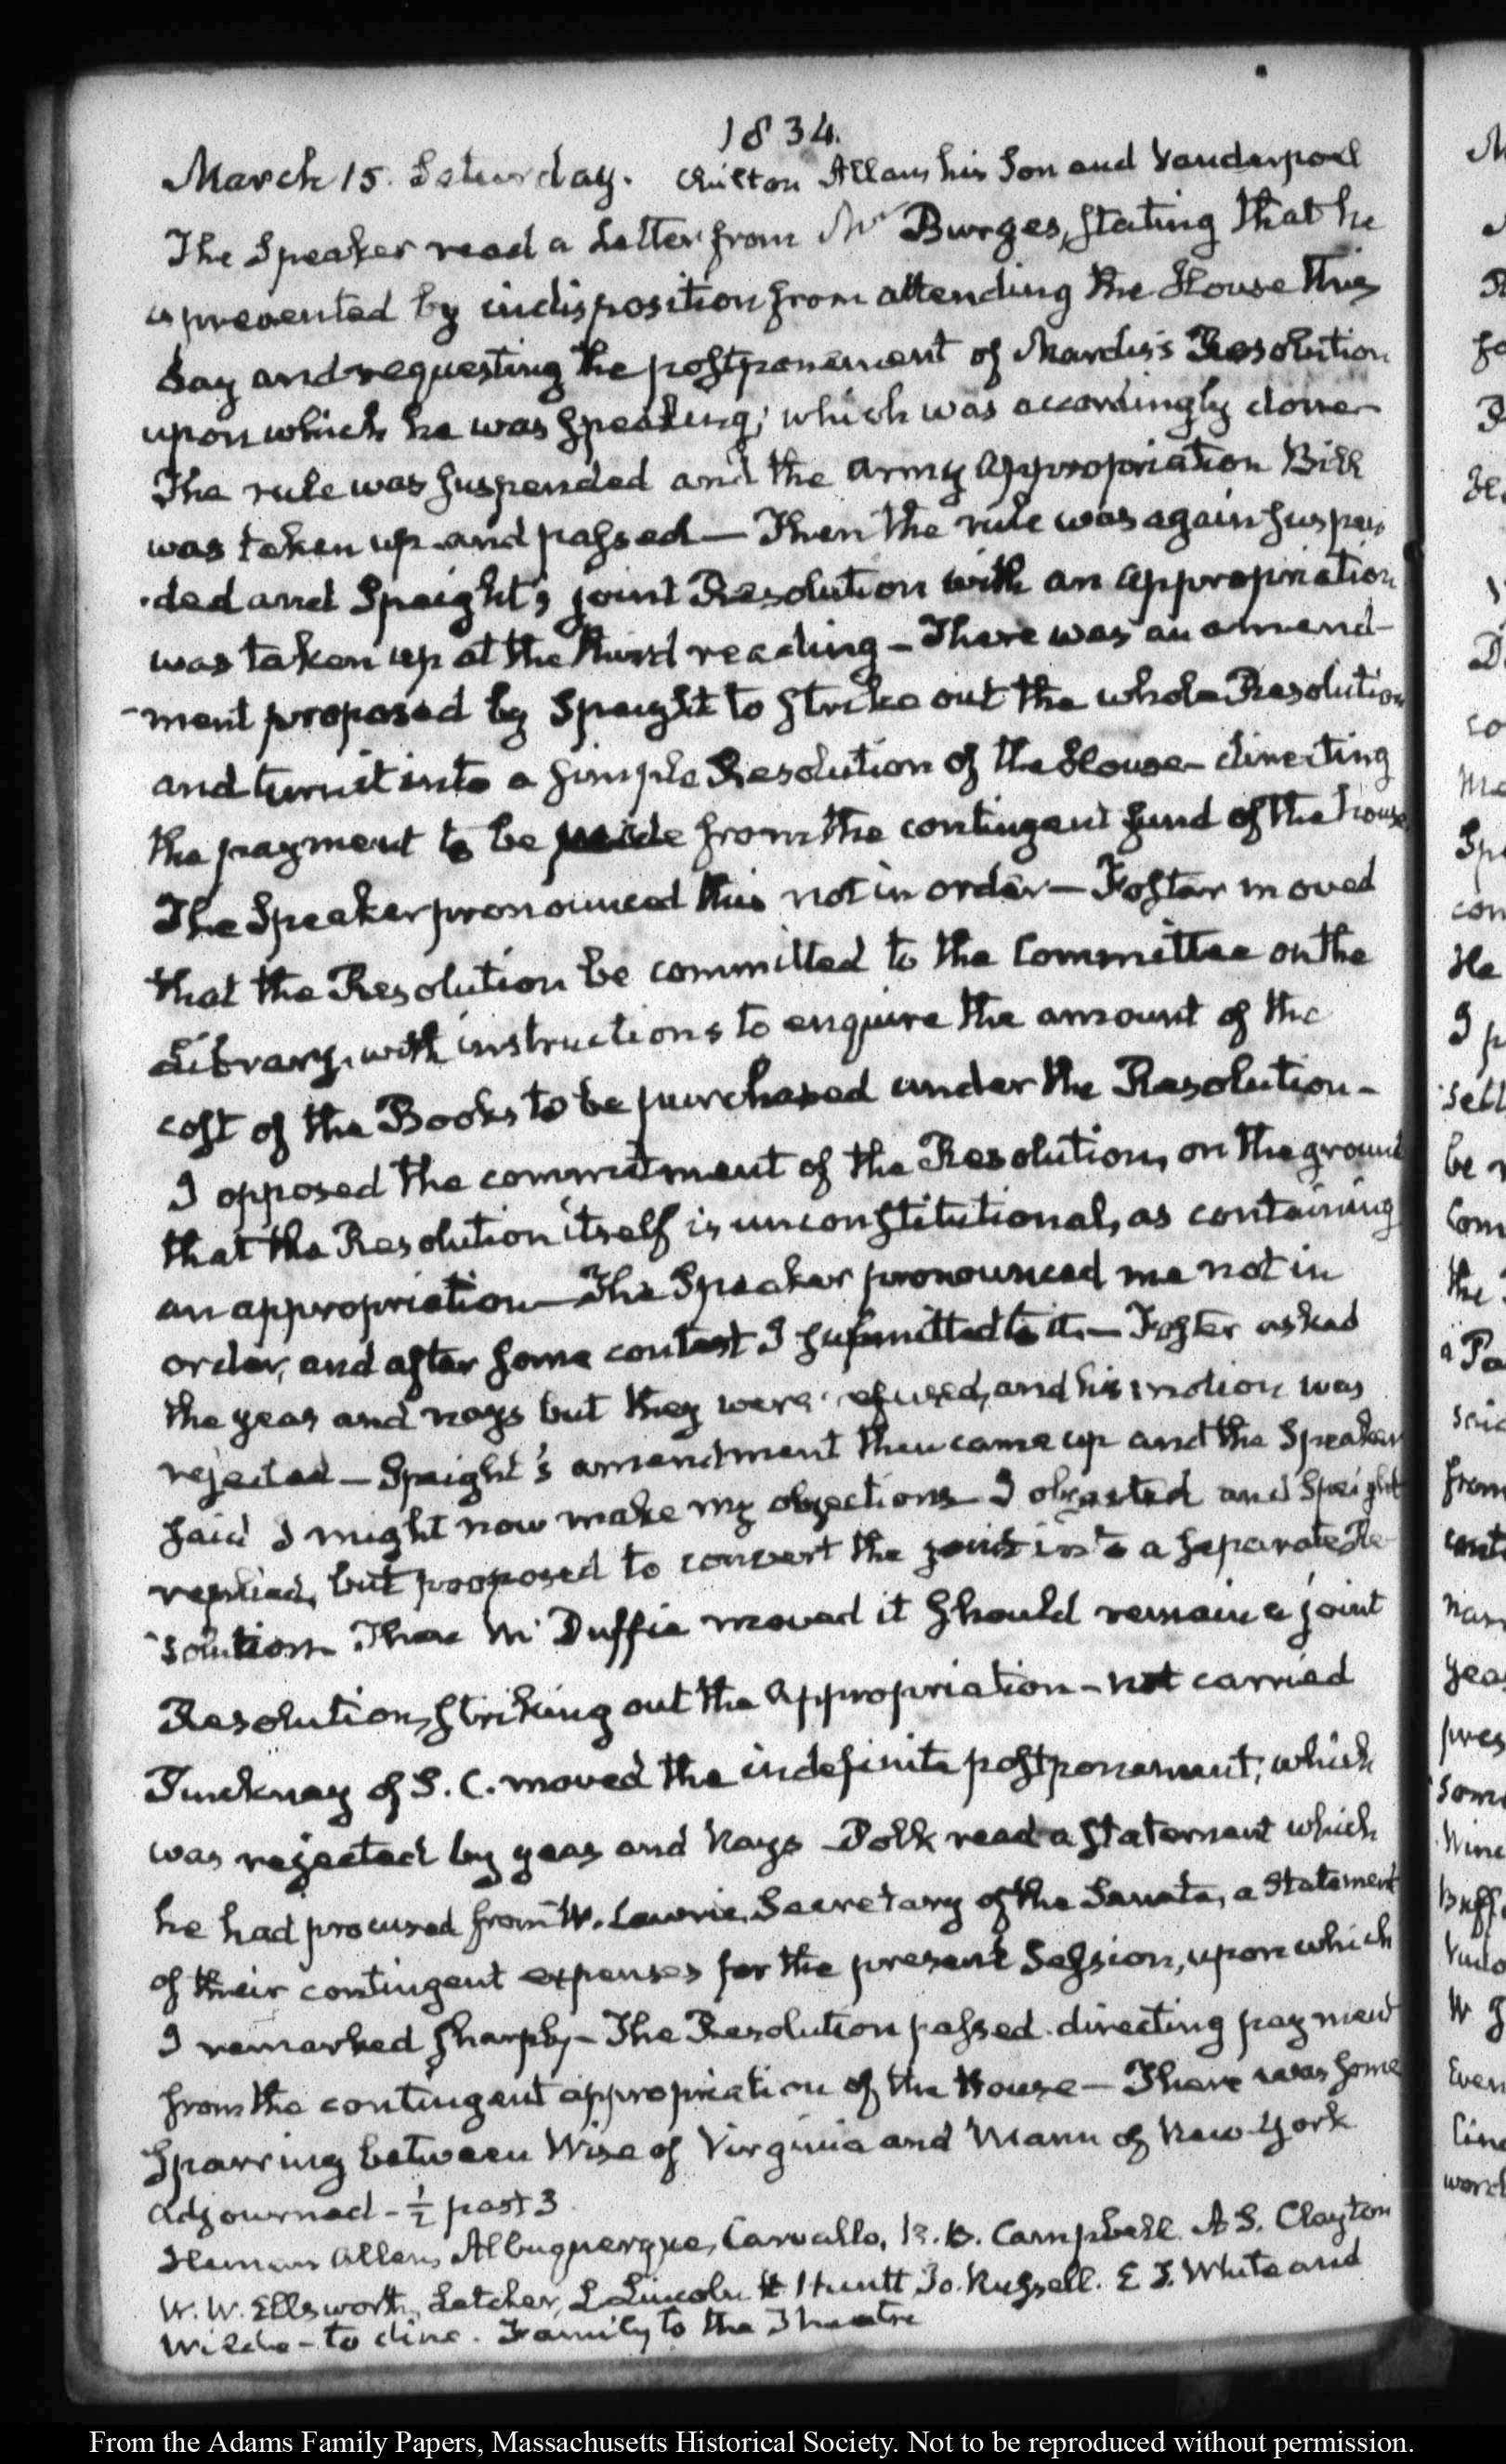 1834.
March 15. Saturday. Chilton Allan, his Son and Vanderpoel
The Speaker read a Letter from Mr Burges, stating that he
is prevented by indisposition from attending the House this
day and requesting the postponement of Mardis's Resolution
upon which he was speaking; which was accordingly done
The rule was suspended and the Army Appropriation Bill
was taken up and passed — Then the rule was again suspen
ded and Speight's joint Resolution with an appropriation
was taken up at the third reading — There was an amend-
-ment proposed by Speight to strike out the whole Resolution
and turn it into a simple Resolution of the House directing
the payment to be made from the contingent fund of the house
The Speaker pronounced this not in order — Foster moved
that the Resolution be committed to the Committee on the
Library, with instructions to enquire the amount of the
cost of the Books to be purchased under the Resolution -
I opposed the commitment of the Resolution, on the ground
that the Resolution itself is unconstitutional, as containing
an appropriation — The Speaker pronounced me not in
order, and after some contest I submitted to it. — Foster asked
the yeas and nays but they were refused, and his motion was
rejected — Speight's amendment then came up and the Speaker
said I might now make my objections I objected and Speight
replied, but proposed to convert the joint into a separate Re-
-solution Then McDuffie moved it should remain a joint
Resolution, striking out the Appropriation - not carried
Pinckney of S. C. moved the indefinite postponement; which
was rejected by yeas and Nays Polk read a statement which
he had procured from W. Lowrie, Secretary of the Senate, a statement
of their contingent expenses for the present Session, upon which
I remarked sharply — The Resolution passed directing payment
from the contingent appropriation of the House — There was some
sparring between Wise of Virginia and Mann of New York
Adjourned - ½ past 3
Heman Allen, Albuquerque, Carvallo, R. B. Campbell A S. Clayton
W. W. Ellsworth, Letcher, L Lincoln Huntt Jo. Russell. E D. White and
Wilde - to dine. Family to the Theatre
From the Adams Family Papers, Massachusetts Historical Society. Not to be reproduced without permission.